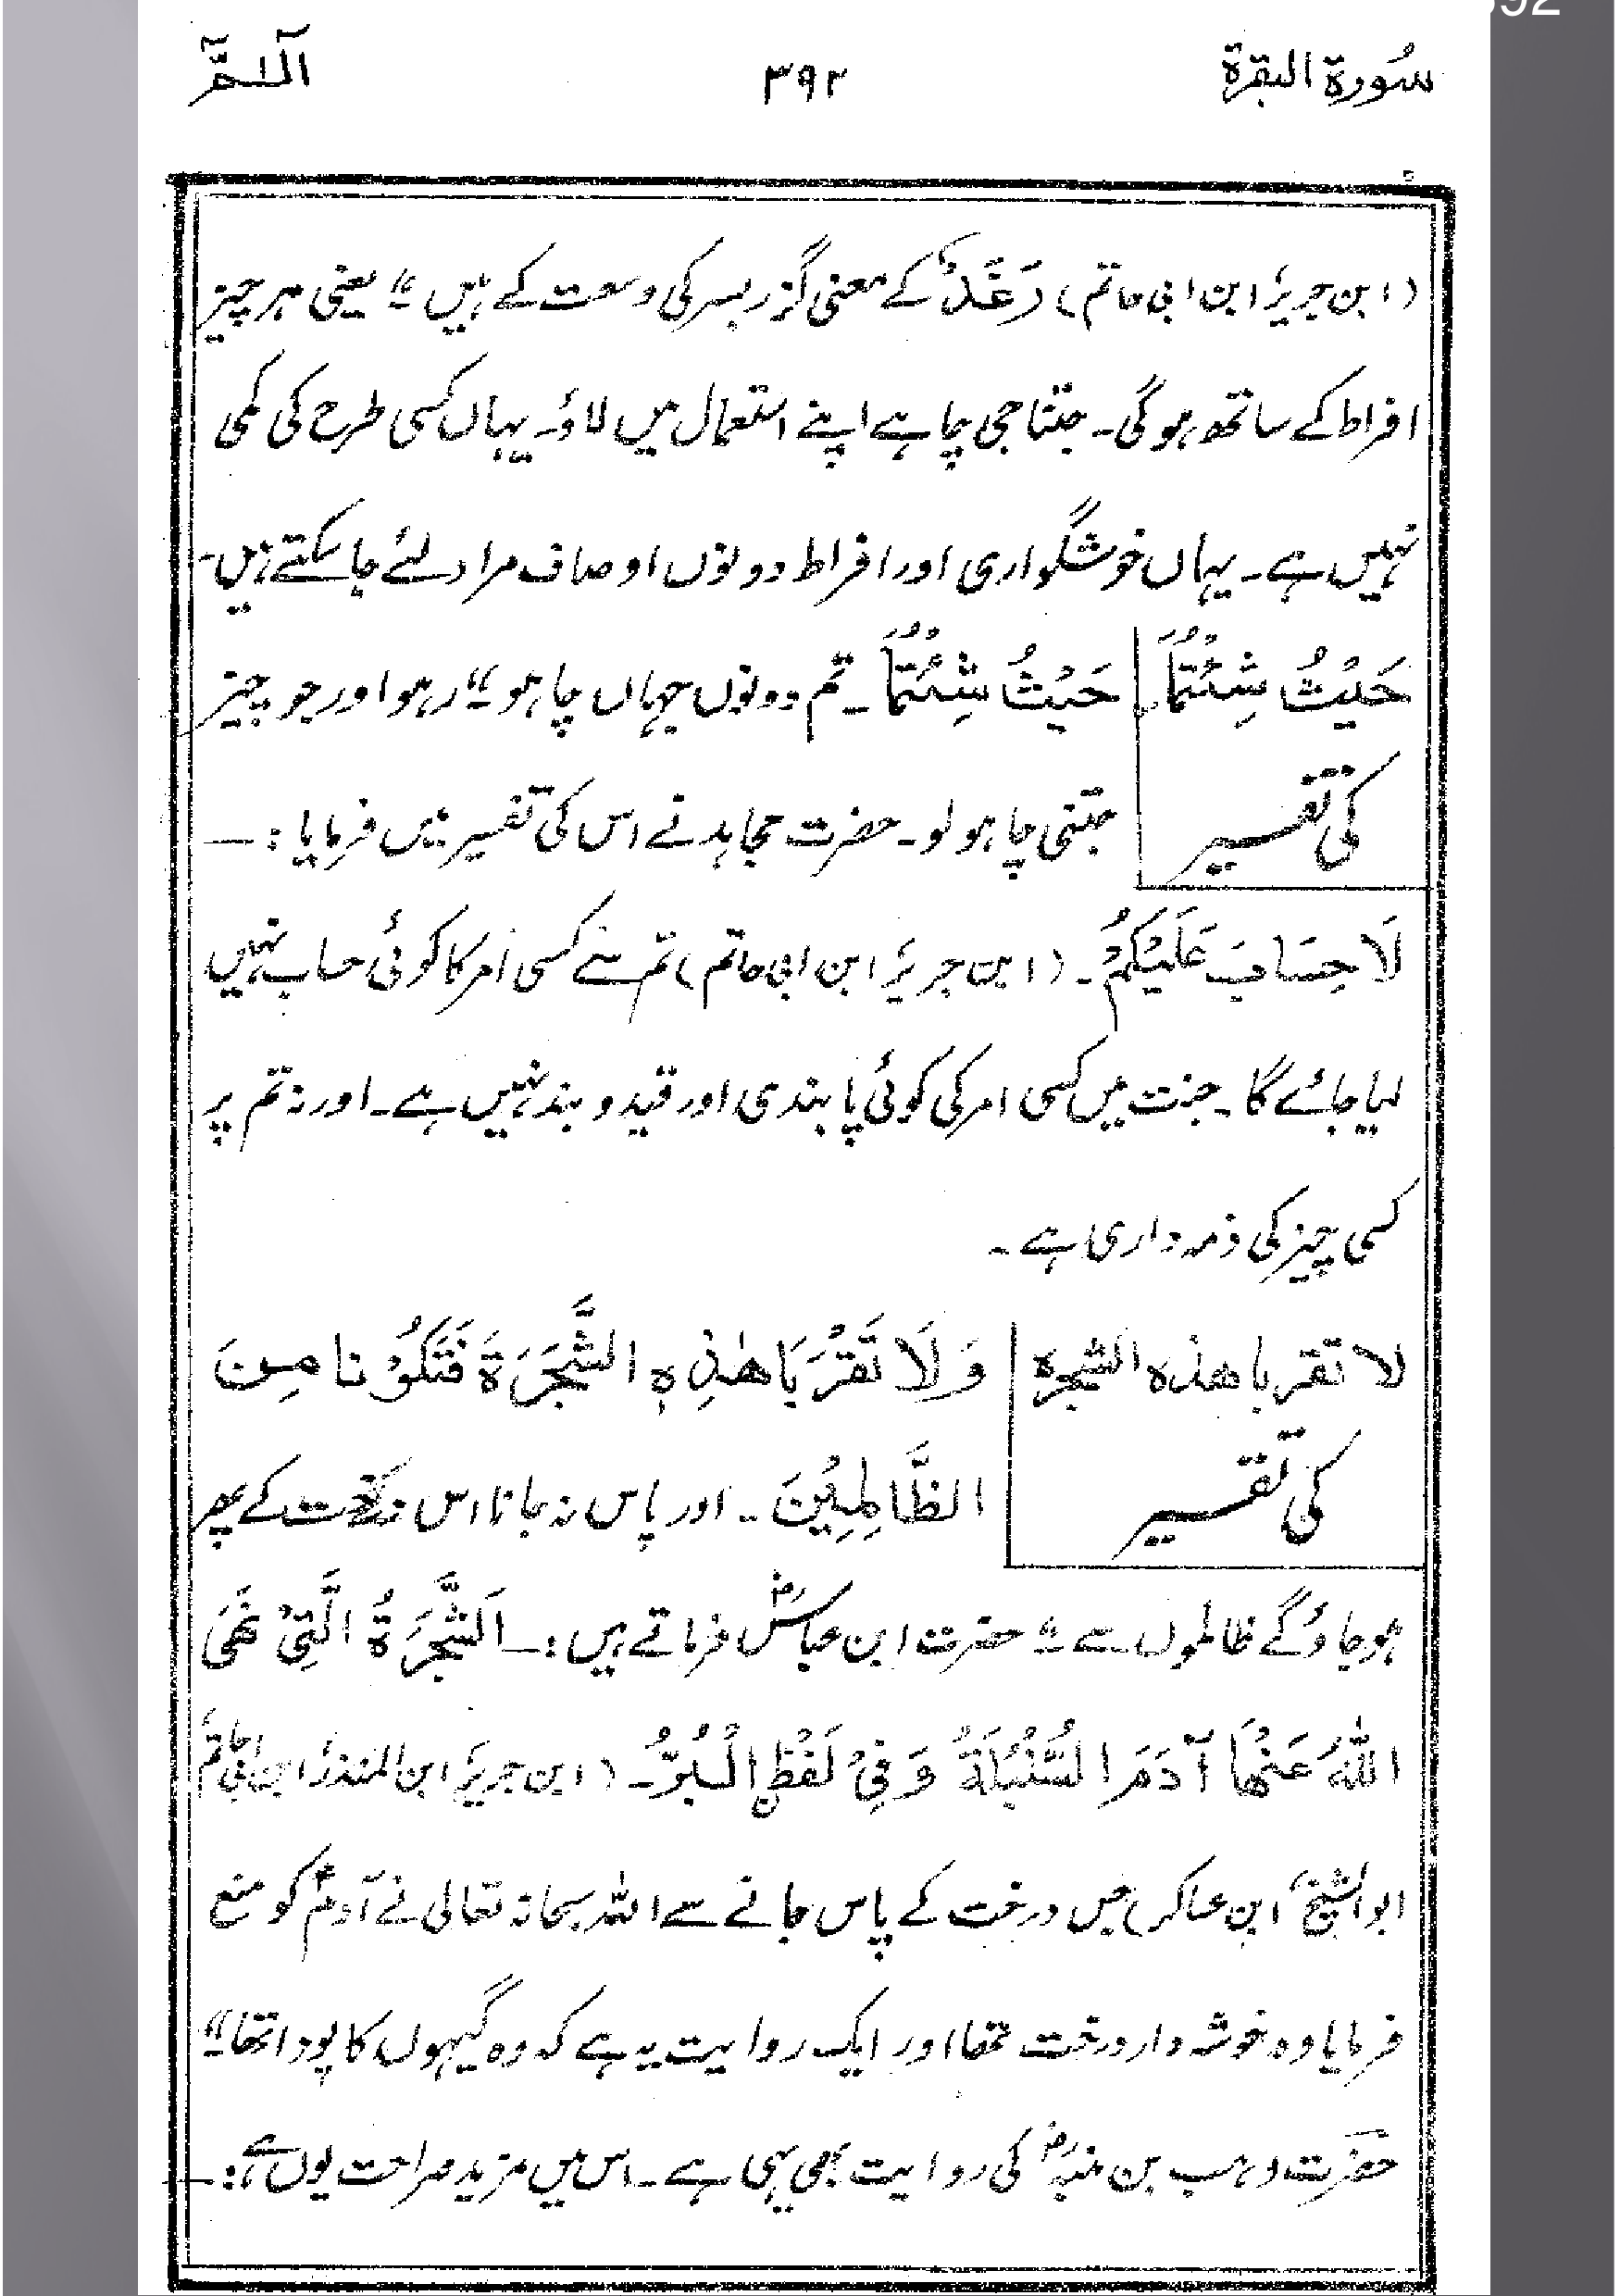 سُورة البقرة ۳۹۲ آلٓـمّٓ
(ابن جریرؒ ابن ابی حاتم) رَغَدًا کے معنی گزر بسر کی وسعت کے ہیں" یعنی ہر چیز
افراط کے ساتھ ہوگی۔ جتنا جی چاہے اپنے استعمال میں لاؤ۔ یہاں کسی طرح کی کمی
نہیں ہے۔ یہاں خوشگواری اور افراط دونوں اوصاف مراد لئے جاسکتے ہیں۔
حَیْثُ شِئْتُمَا
کی تفسیر
حَیْثُ شِئْتُمَا۔ تم دونوں جہاں چاہو" رہو اور جو چیز
جتنی چاہو لو۔ حضرت مجاہد نے اس کی تفسیر میں فرمایا :—
لَا حِسَابَ عَلَیْکُمْ۔ (ابن جریرؒ ابن ابی حاتم) تم سے کسی امر کا کوئی حساب نہیں
لیا جائے گا۔ جنت میں کسی امر کی کوئی پابندی اور قید و بند نہیں ہے۔ اور نہ تم پر
کسی چیز کی ذمہ داری ہے۔
لا تقربا ھذہ الشجرہ
کی تفسیر
وَلَا تَقْرَبَا ھٰذِہِ الشَّجَرَۃَ فَتَکُوْنَا مِنَ
الظَّالِمِیْنَ۔ اور پاس نہ جانا اس درخت کے پھر
ہوجاؤگے ظالموں سے" حضرت ابن عباسؓ فرماتے ہیں :— اَلشَّجَرَۃُ الَّتِیْ نَھَی
اللّٰہُ عَنْھَا آدَمَ السُّنْبُلَۃُ وَفِیْ لَفْظٍ الْبُرُّ۔ (ابن جریرؒ ابن المنذرؒ ابن ابی حاتمؒ
ابو الشیخؒ ابن عساکر) جس درخت کے پاس جانے سے اللہ سبحانہ تعالی نے آدمؑ کو منع
فرمایا وہ خوشہ دار درخت تھا اور ایک روایت یہ ہے کہ وہ گیہوں کا پودا تھا"
حضرت وہب بن منبہؓ کی روایت بھی یہی ہے۔ اس میں مزید صراحت یوں ہے :—